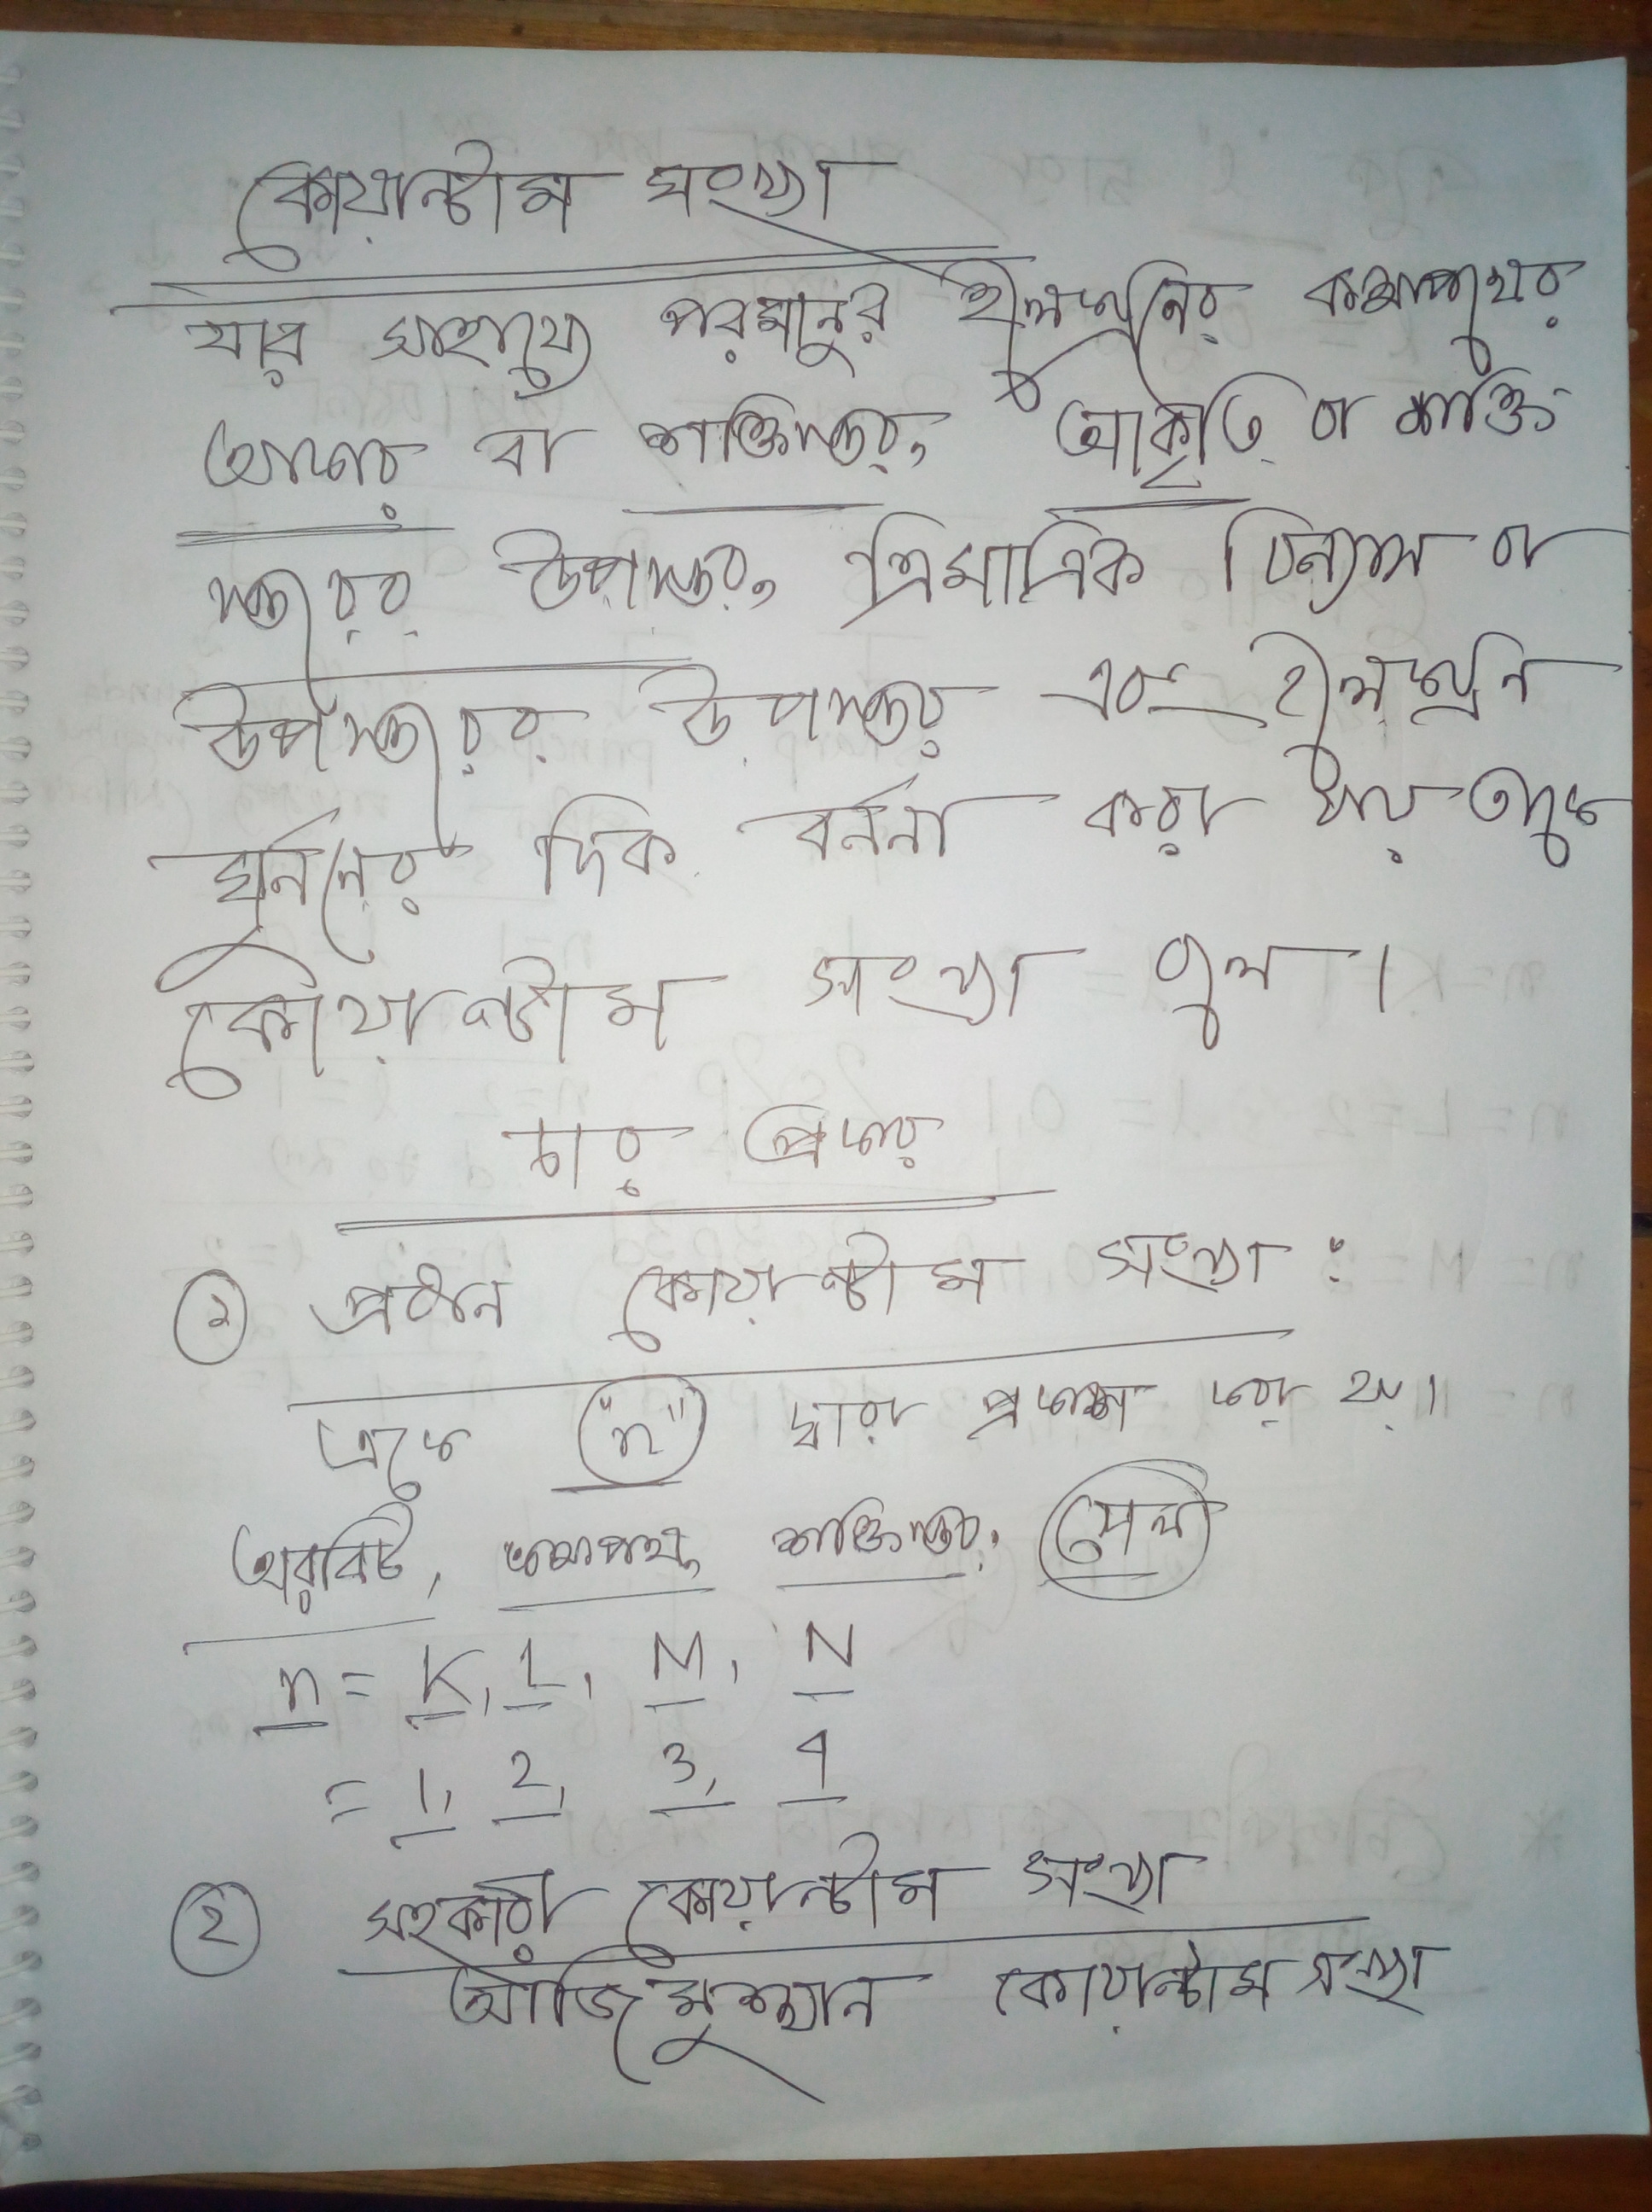 কোয়ান্টাম সংখ্যা
যার সাহায্যে পরমানুর ইলেকট্রনের কক্ষপথের
আকার বা শক্তিস্তর, আকৃতি বা শক্তি
স্তরের উপস্তর, ত্রিমাত্রিক বিন্যাস বা
উপস্তরের উপস্তর এবং ইলেকট্রন
ঘূর্ননের দিক বর্ননা করা যায় তাকে
কোয়ান্টাম সংখ্যা বলে।
চার প্রকার
১ প্রধান কোয়ান্টাম সংখ্যা :
একে "n" দ্বারা প্রকাশ করা হয়।
অরবিট, কক্ষপথ, শক্তিস্তর, সেল
n = K, L, M, N
= 1, 2, 3, 4
২ সহকারী কোয়ান্টাম সংখ্যা
আজিমুথ্যাল কোয়ান্টাম সংখ্যা